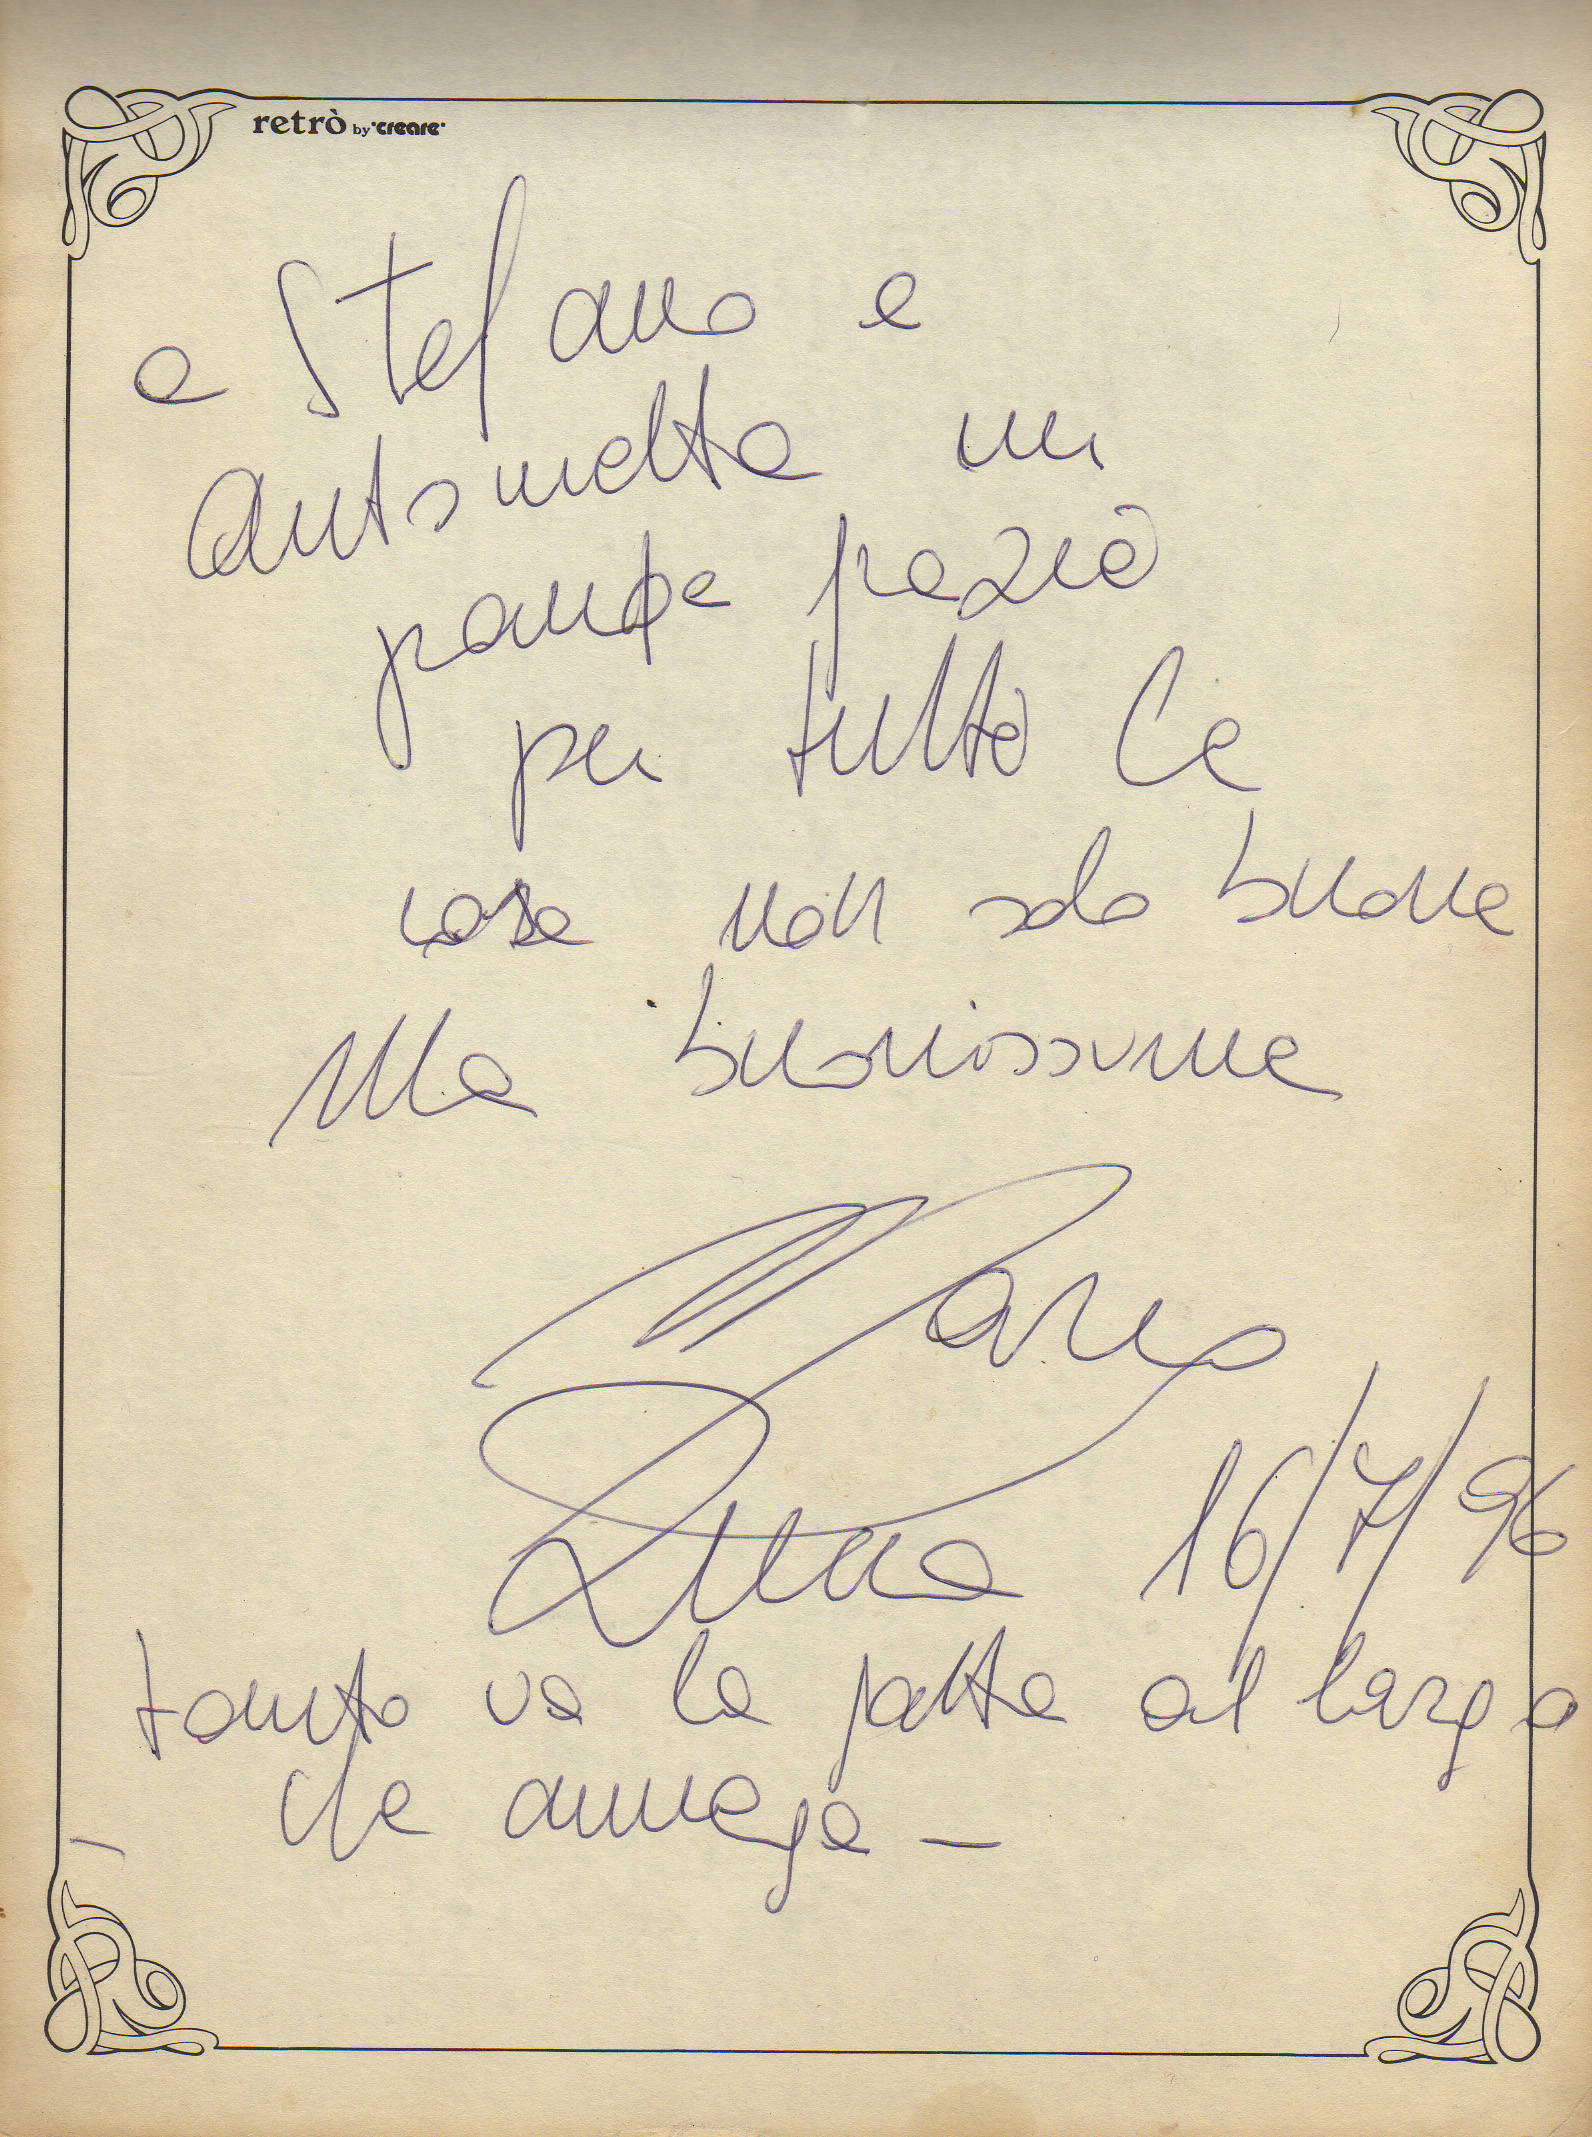 retrò by "creare"
a Stefano e
Antonietta un
grande grazie
per tutte le
cose non solo buone
Ma buonissime
Marco
Luna 16/7/96
tanto va la gatta al largo
che annega –